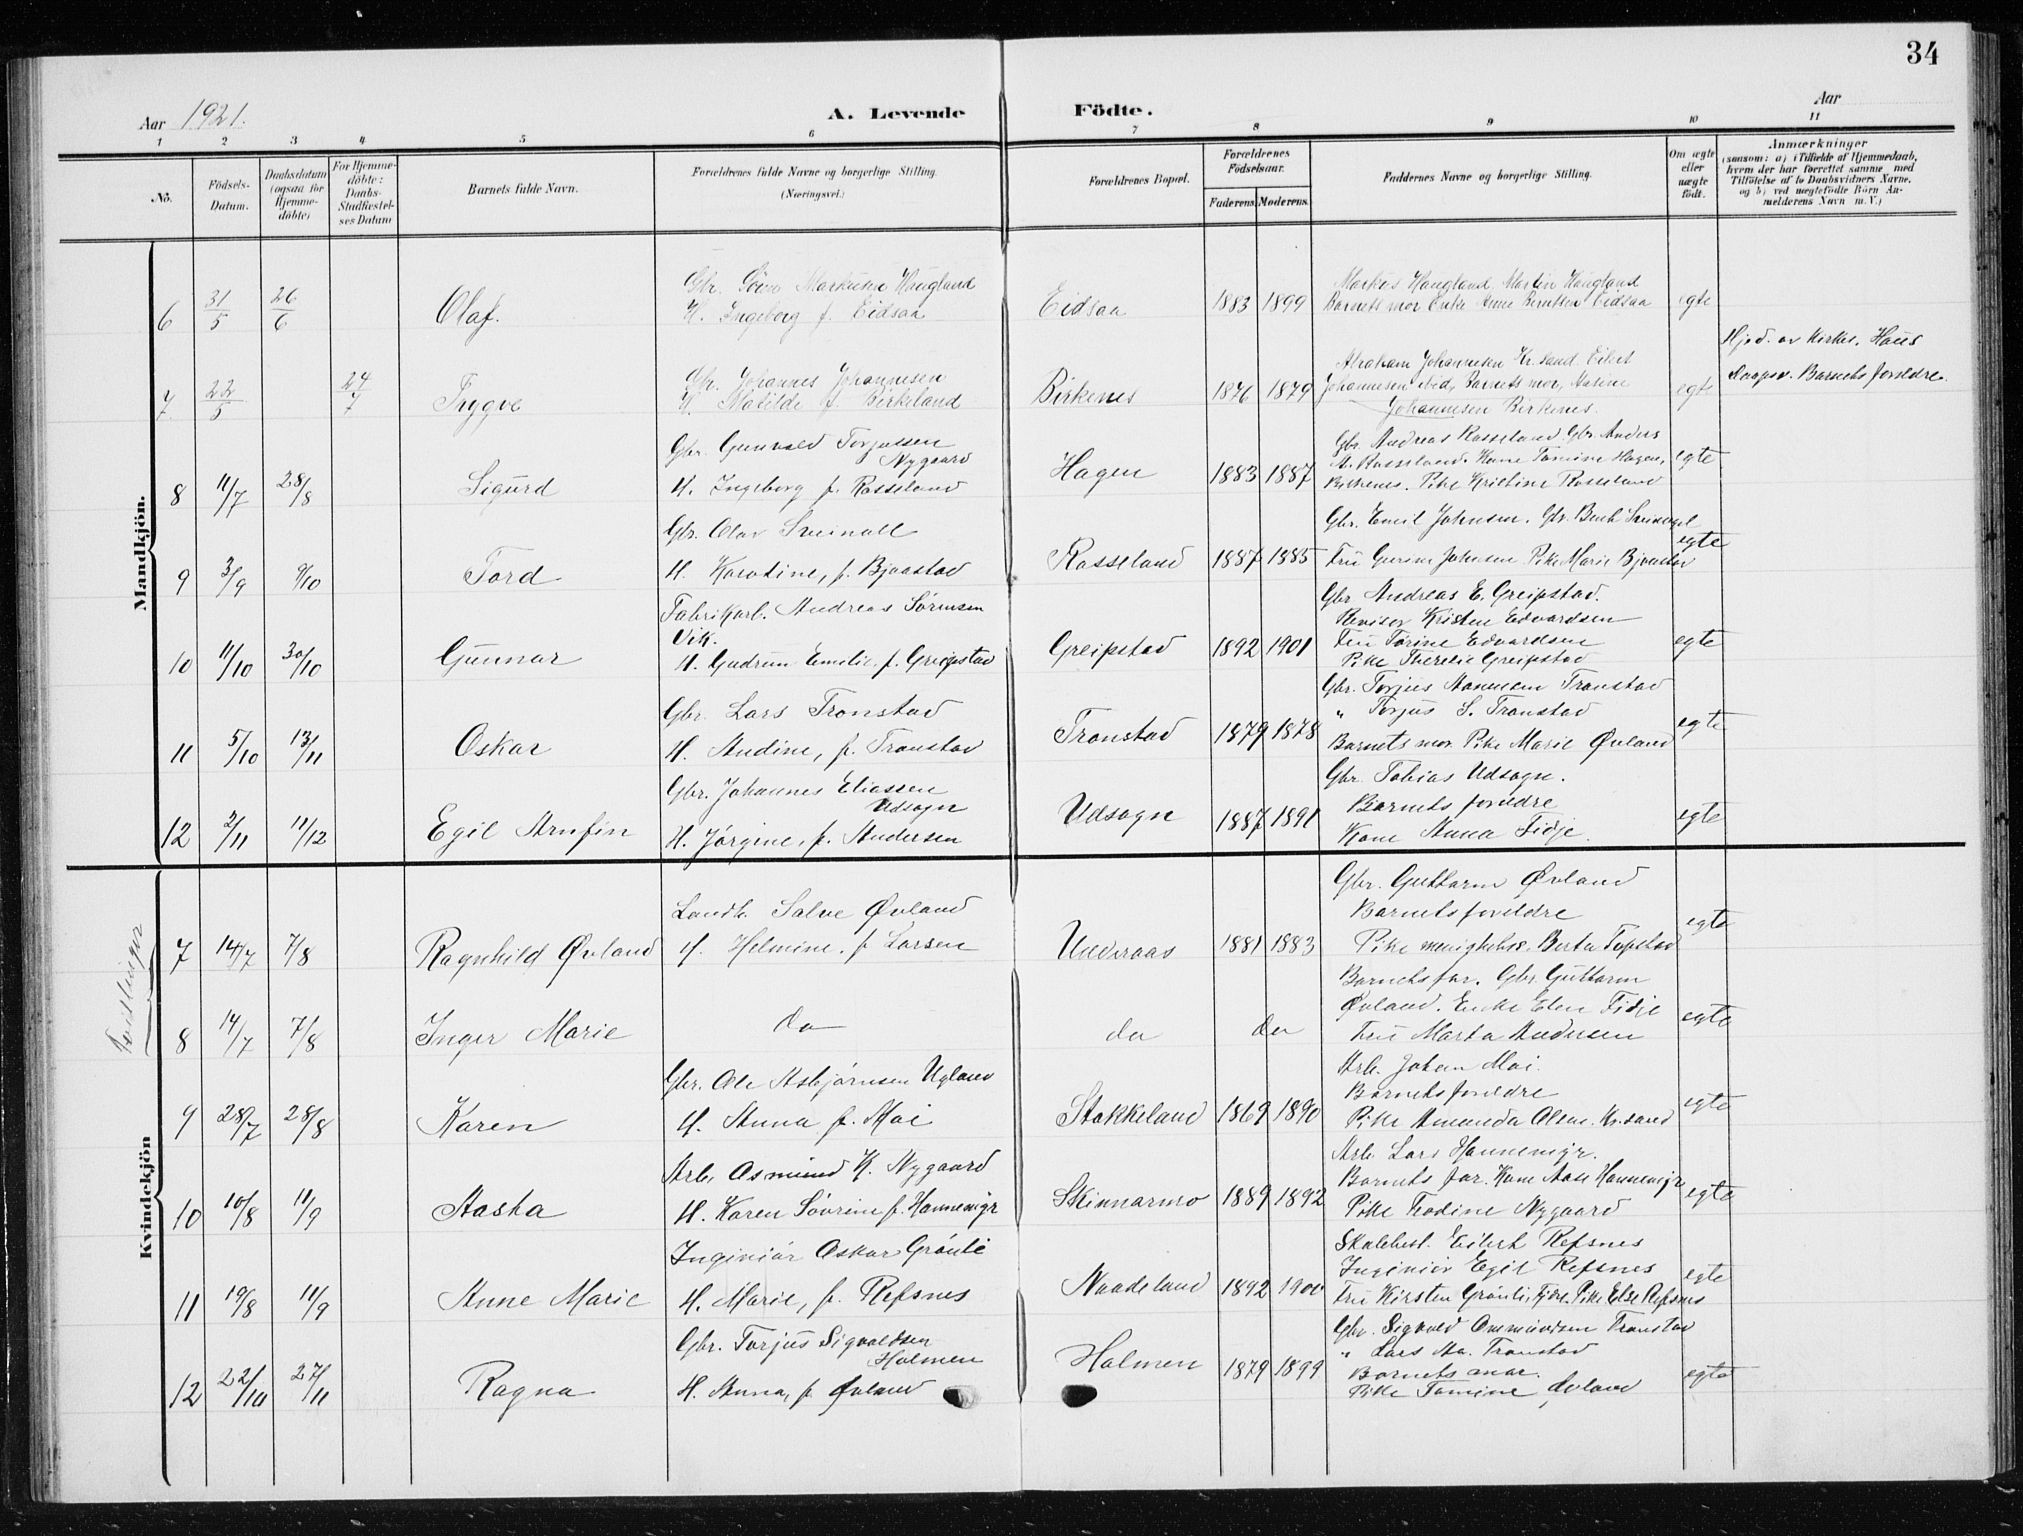 34
Aar 1921.
A. Levende Födte.
Aar
1 2 3 4 5 6 7 8 9 10 11
No.
Födsels-Datum.
Daabsdatum (ogsaa for Hjemme-döbte)
For Hjemme-döbte: Daabs-Stadfæstel-ses Datum
Barnets fulde Navn.
Forældrenes fulde Navne og borgerlige Stilling. (Næringsvei.)
Forældrenes Bopæl.
Forældrenes Födselsaar.
Faderens. Moderens.
Faddernes Navne og borgerlige Stilling.
Om ægte eller uægte födt.
Anmærkninger
(saasom: a) i Tilfælde af Hjemmedaab, hvem der har forrettet samme med Tilföielse af to Daabsvidners Navne, og b) ved uægtefödte Börn An-melderens Navn m. V.)
Mandkjön.
6 31/5 26/6 Olaf.
Gbr. Søren Markusen Haugland
H. Ingeborg f. Eidsaa
Eidsaa 1883 1899
Markus Haugland Martin Haugland
Barnets mor Enke Anne Berntsen Eidsaa
egte
7 22/5 24/7 Trygve
Gbr. Johannes Johannesen
H. Matilde f. Birkeland
Birkenes 1876 1879
Abraham Johannesen Kr.sand Eilert
Johannesen ibid, Barnets mor,
Johannesen Birkenes.
egte
Hjed. av Kirkes. Haus
Daapsv. Barnets foreldre.
8 11/7 28/8 Sigurd
Gbr. Gunvald Torjussen
Nygaard
H. Ingeborg f. Rosseland
Hagen 1883 1887
Gbr. Andreas Rosseland. Gbr. Anders
A. Rosseland. Kone Tomine Hagen,
Birkenes. Pike Kristine Rosseland
egte
9 3/9 9/10 Tord
Gbr. Olav Sveinall
H. Karotine, f. Bjoastad
Rosseland 1887 1885
Gbr. Emil Johnsen. Gbr. Bent
Fru Johnsen. Pike Marie
egte
10 11/10 30/10 Gunnar
Fabrikarb. Andreas Sørensen
Vik.
H. Gudrun Emilie, f. Greipstad
Greipstad 1892 1901
Gbr Andreas E. Greipstad.
Revisor Kristen Edvardsen
Fru Torine Edvardsen
Pike Therese Greipstad
egte
11 5/10 13/11 Oskar
Gbr. Lars Tronstad
H. Andine, f. Tronstad
Tronstad 1879 1878
Gbr. Torjus Aanensen Tronstad
" Torjus S. Tronstad
Barnets mor. Pike Marie Øvland
egte
12 2/11 11/12 Egil Arnfin
Gbr. Johannes Eliassen
Udsogn
H. Jørgine, f. Andersen
Udsogn 1887 1891
Gbr. Tobias Udsogn.
Barnets foreldre
Kone Anna Fidje.
egte
Kvindekjön
Tvillinger
7 14/7 7/8 Ragnhild Øvland
Landh. Salve Øvland
H. Helmine, f. Larsen
Udderaas 1881 1883
Gbr. Guttorm Øvland
Barnets foreldre
Pike menighetss. Berta Topstad
egte
8 14/7 7/8 Inger Marie
do
do
do
Barnets far. Gbr. Guttorm
Øvland. Enke Elen Fidje
Fru Marta Andersen
egte
9 28/7 28/8 Karen
Gbr. Ole Asbjørnsen Ugland
H. Anna f. Moi
Stokkeland 1869 1890
Arb. Johan Moi.
Barnets foreldre
Pike Amanda Olsen. Kr.sand
egte
10 10/8 11/9 Aasta
Arb. Osmund K. Nygaard
H. Karen Sørine f. Hannemyr
Skinnarmo 1889 1892
Arb Lars Hannemyr.
Barnets far. Kone Aase Hannemyr
Pike Trodine Nygaard
egte
11 19/8 11/9 Anne Marie
Inginiør Oskar Grønli
H. Marie, f. Refsnes
Naadeland 1892 1900
Skolebest. Eilert Refsnes
Inginiør Egil Refsnes
Fru Kirsten Grønli, Fjære. Pike Else Refsnes
egte
12 22/10 27/11 Ragna
Gbr. Torjus Sigvaldsen
Holmen
H. Anna, f. Øvland
Holmen 1879 1899
Gbr. Sigvald Ommundsen Tronstad
" Lars Aa. Tronstad
Barnets mor.
Pike Tomine Øvland
egte